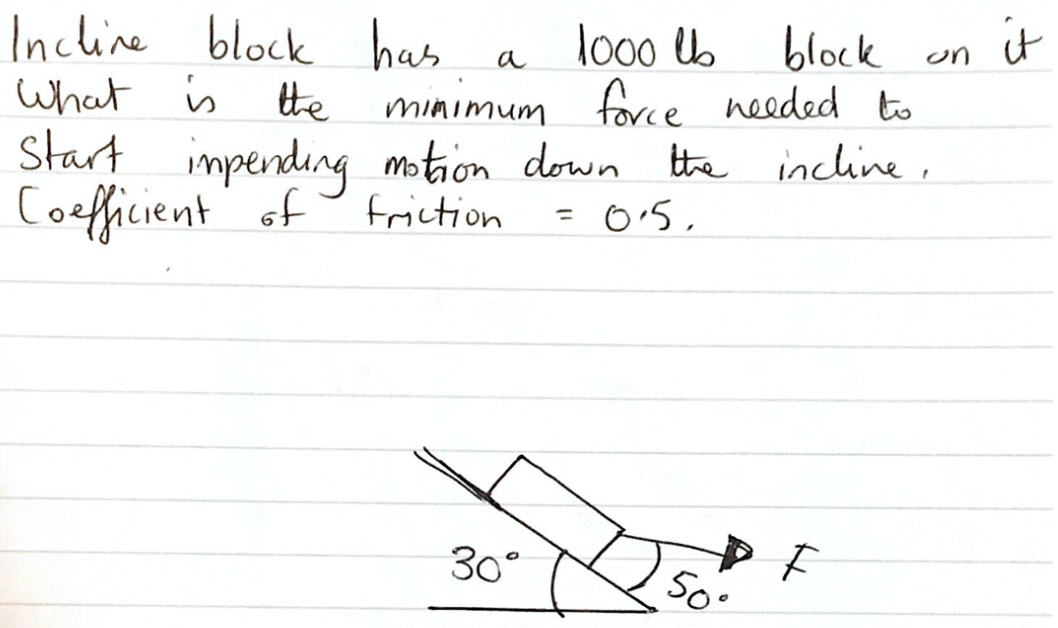 Incline block has a 1000 lb block on it
What is the minimum force needed to
Start impending motion down the incline.
Coefficient of friction = 0.5.
30°
50°
F